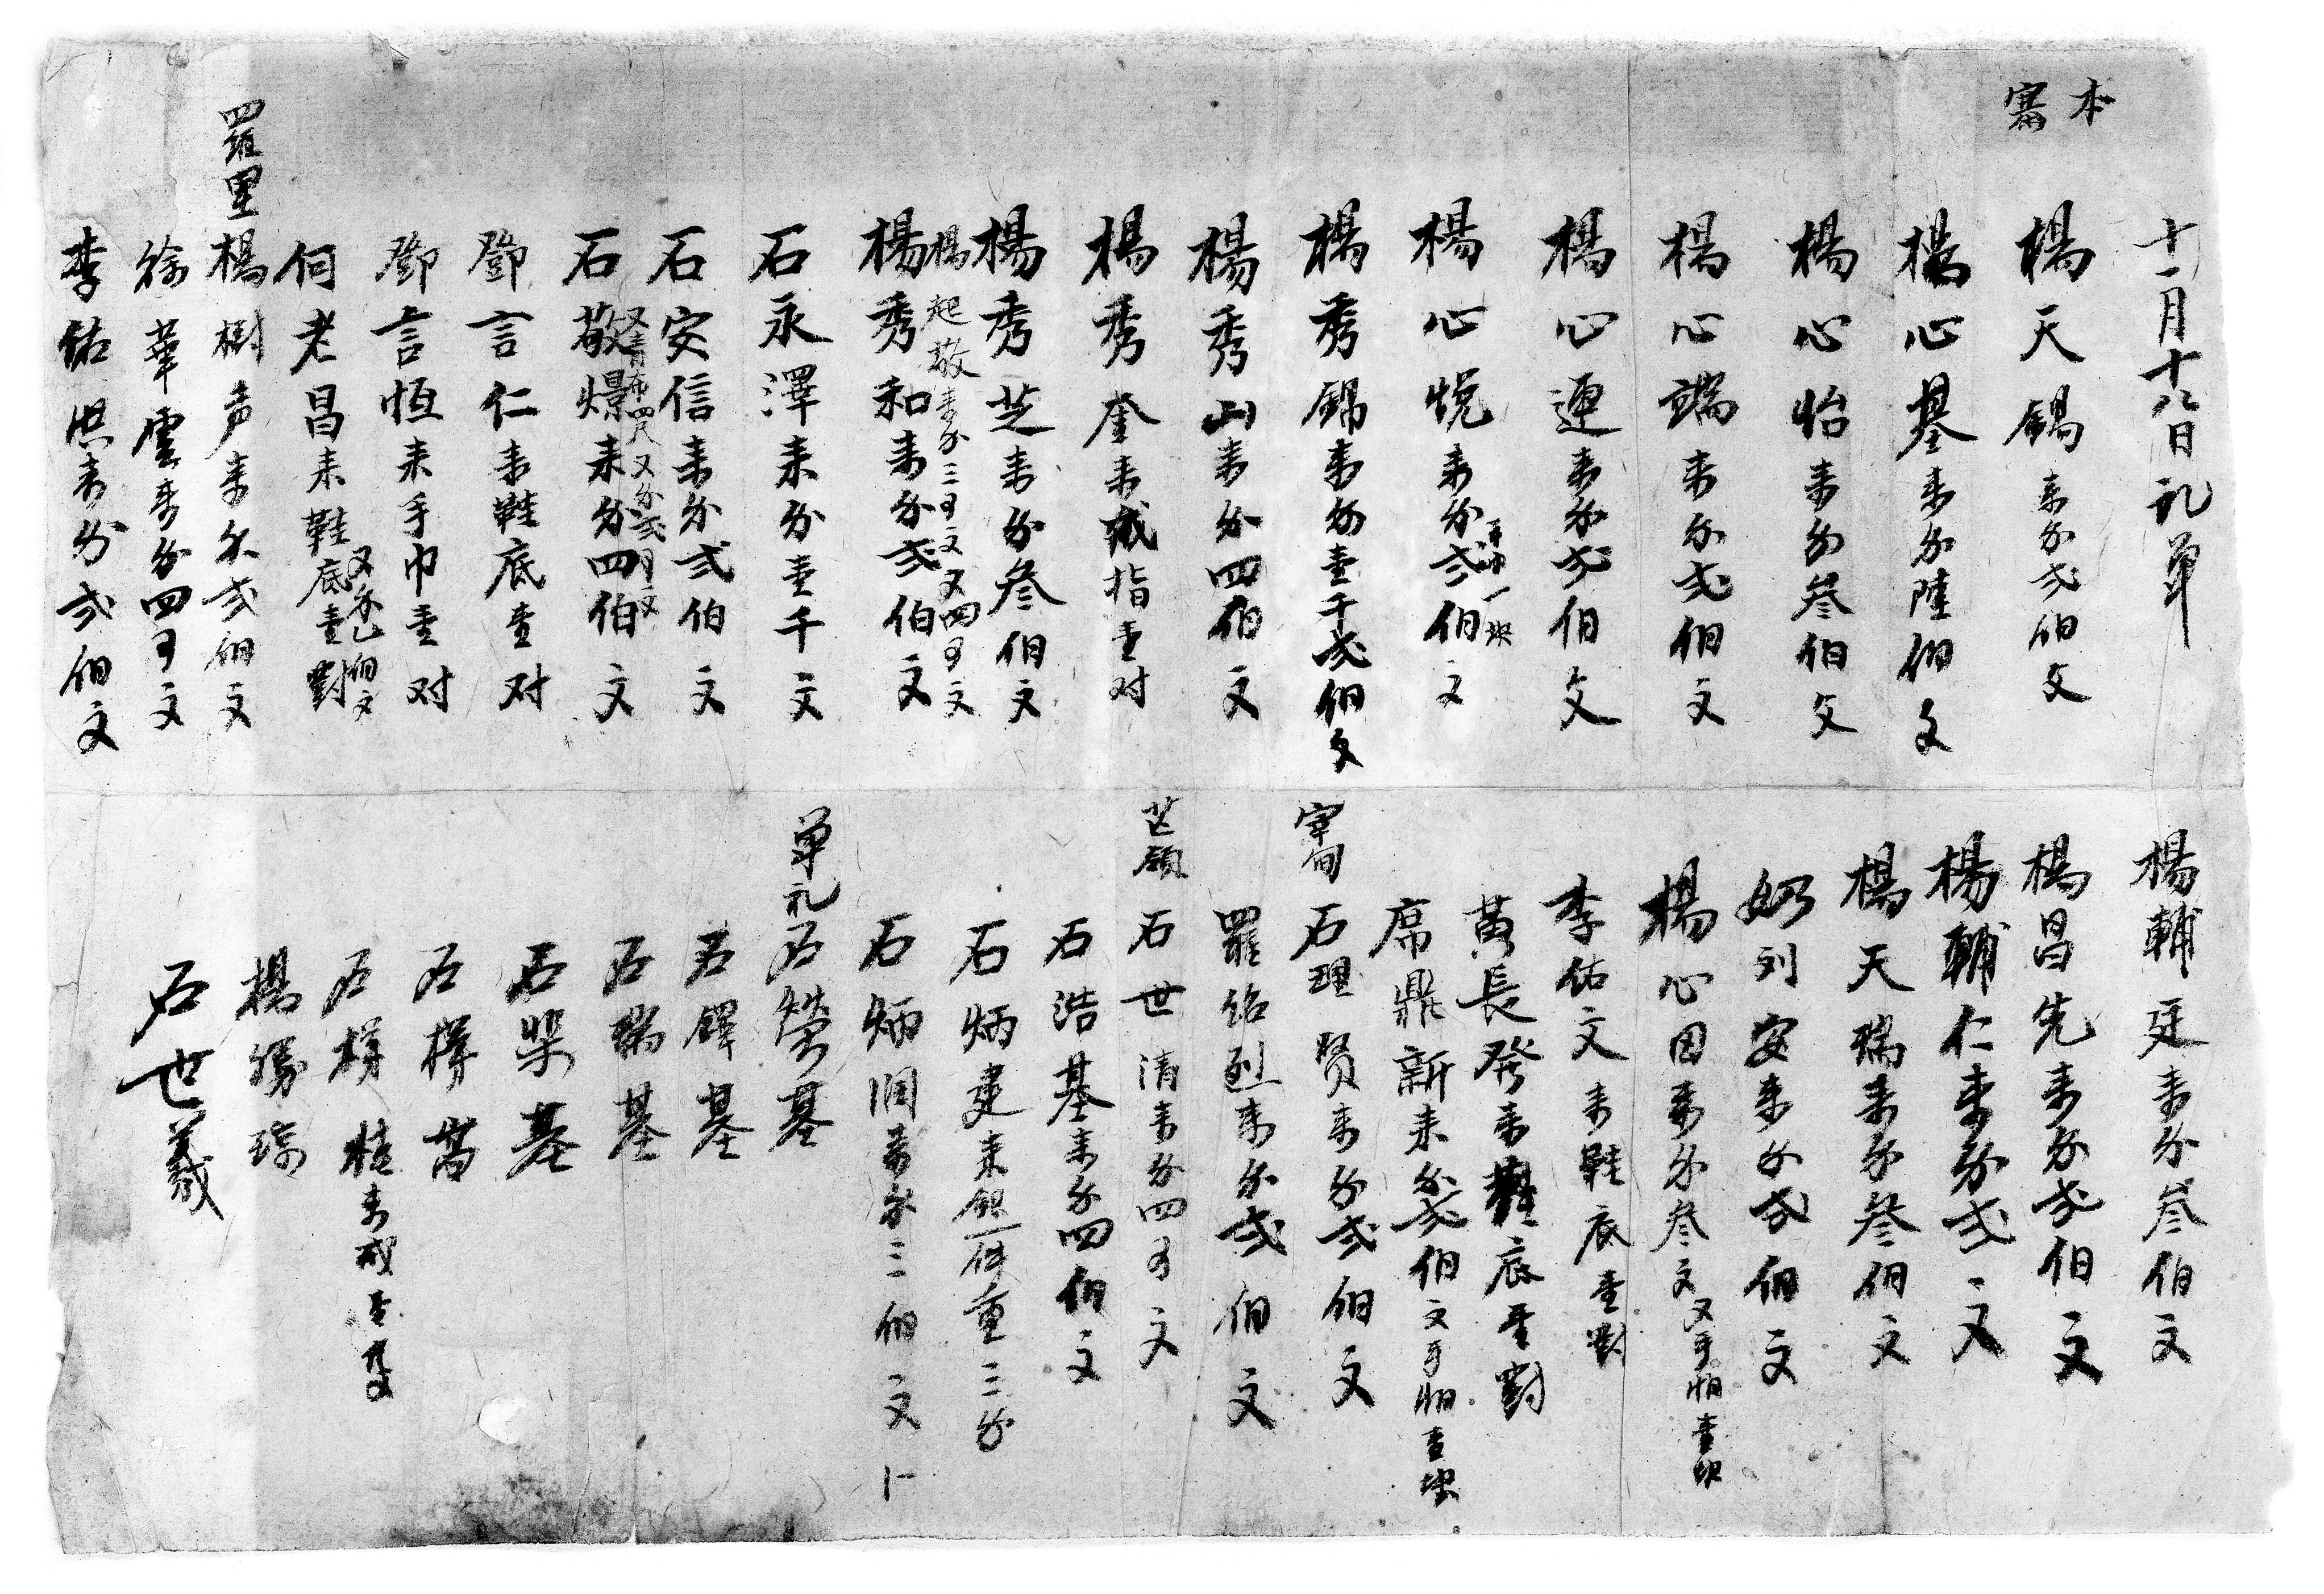 十一月十八日礼单
本寨
楊天錫来分弍佰文
楊心基来分陸佰文
楊心怡来分叄佰文
楊心端来分弍佰文
楊心連来分弍佰文
楊心悦来分弍佰文
手巾一块
楊秀錦来分壹千弍佰文
楊秀山来分四佰文
楊秀奎来戒指壹对
楊秀芝来分叄佰文
楊起敬来分三百文又四百文
楊秀和来分弍佰文
石永澤来分壹千文
石安信来分弍佰文
又青布四尺又分弍百文
石敬爆来分四佰文
鄧言仁来鞋底壹对
鄧言恒来手巾壹对
又分乙佰文
何老昌来鞋底壹對
羅里
楊樹声来分弍佰文
徐華雲来分四百文
李佑熙来分弍佰文
楊輔廷来分叄佰文
楊昌先来分弍佰文
楊輔仁来分弍文
楊天瑞来分叄佰文
刘安来分弍佰文
楊心田来分叄文又手帕壹块
李佑文来鞋底壹對
黄長發来鞋底壹對
席鼎新来分弍佰文手帕壹块
石理贤来分弍佰文
羅紹烈来分弍佰文
芒嶺
石世清来分四百文
石浩基来分四佰文
石炳建来銀一件重三分
石炳润来分三佰文
单礼
石榮基
石鐸基
石瑞基
石渠基
石樸嵩
石樸桂来戒壹支
楊勝瑞
石世義